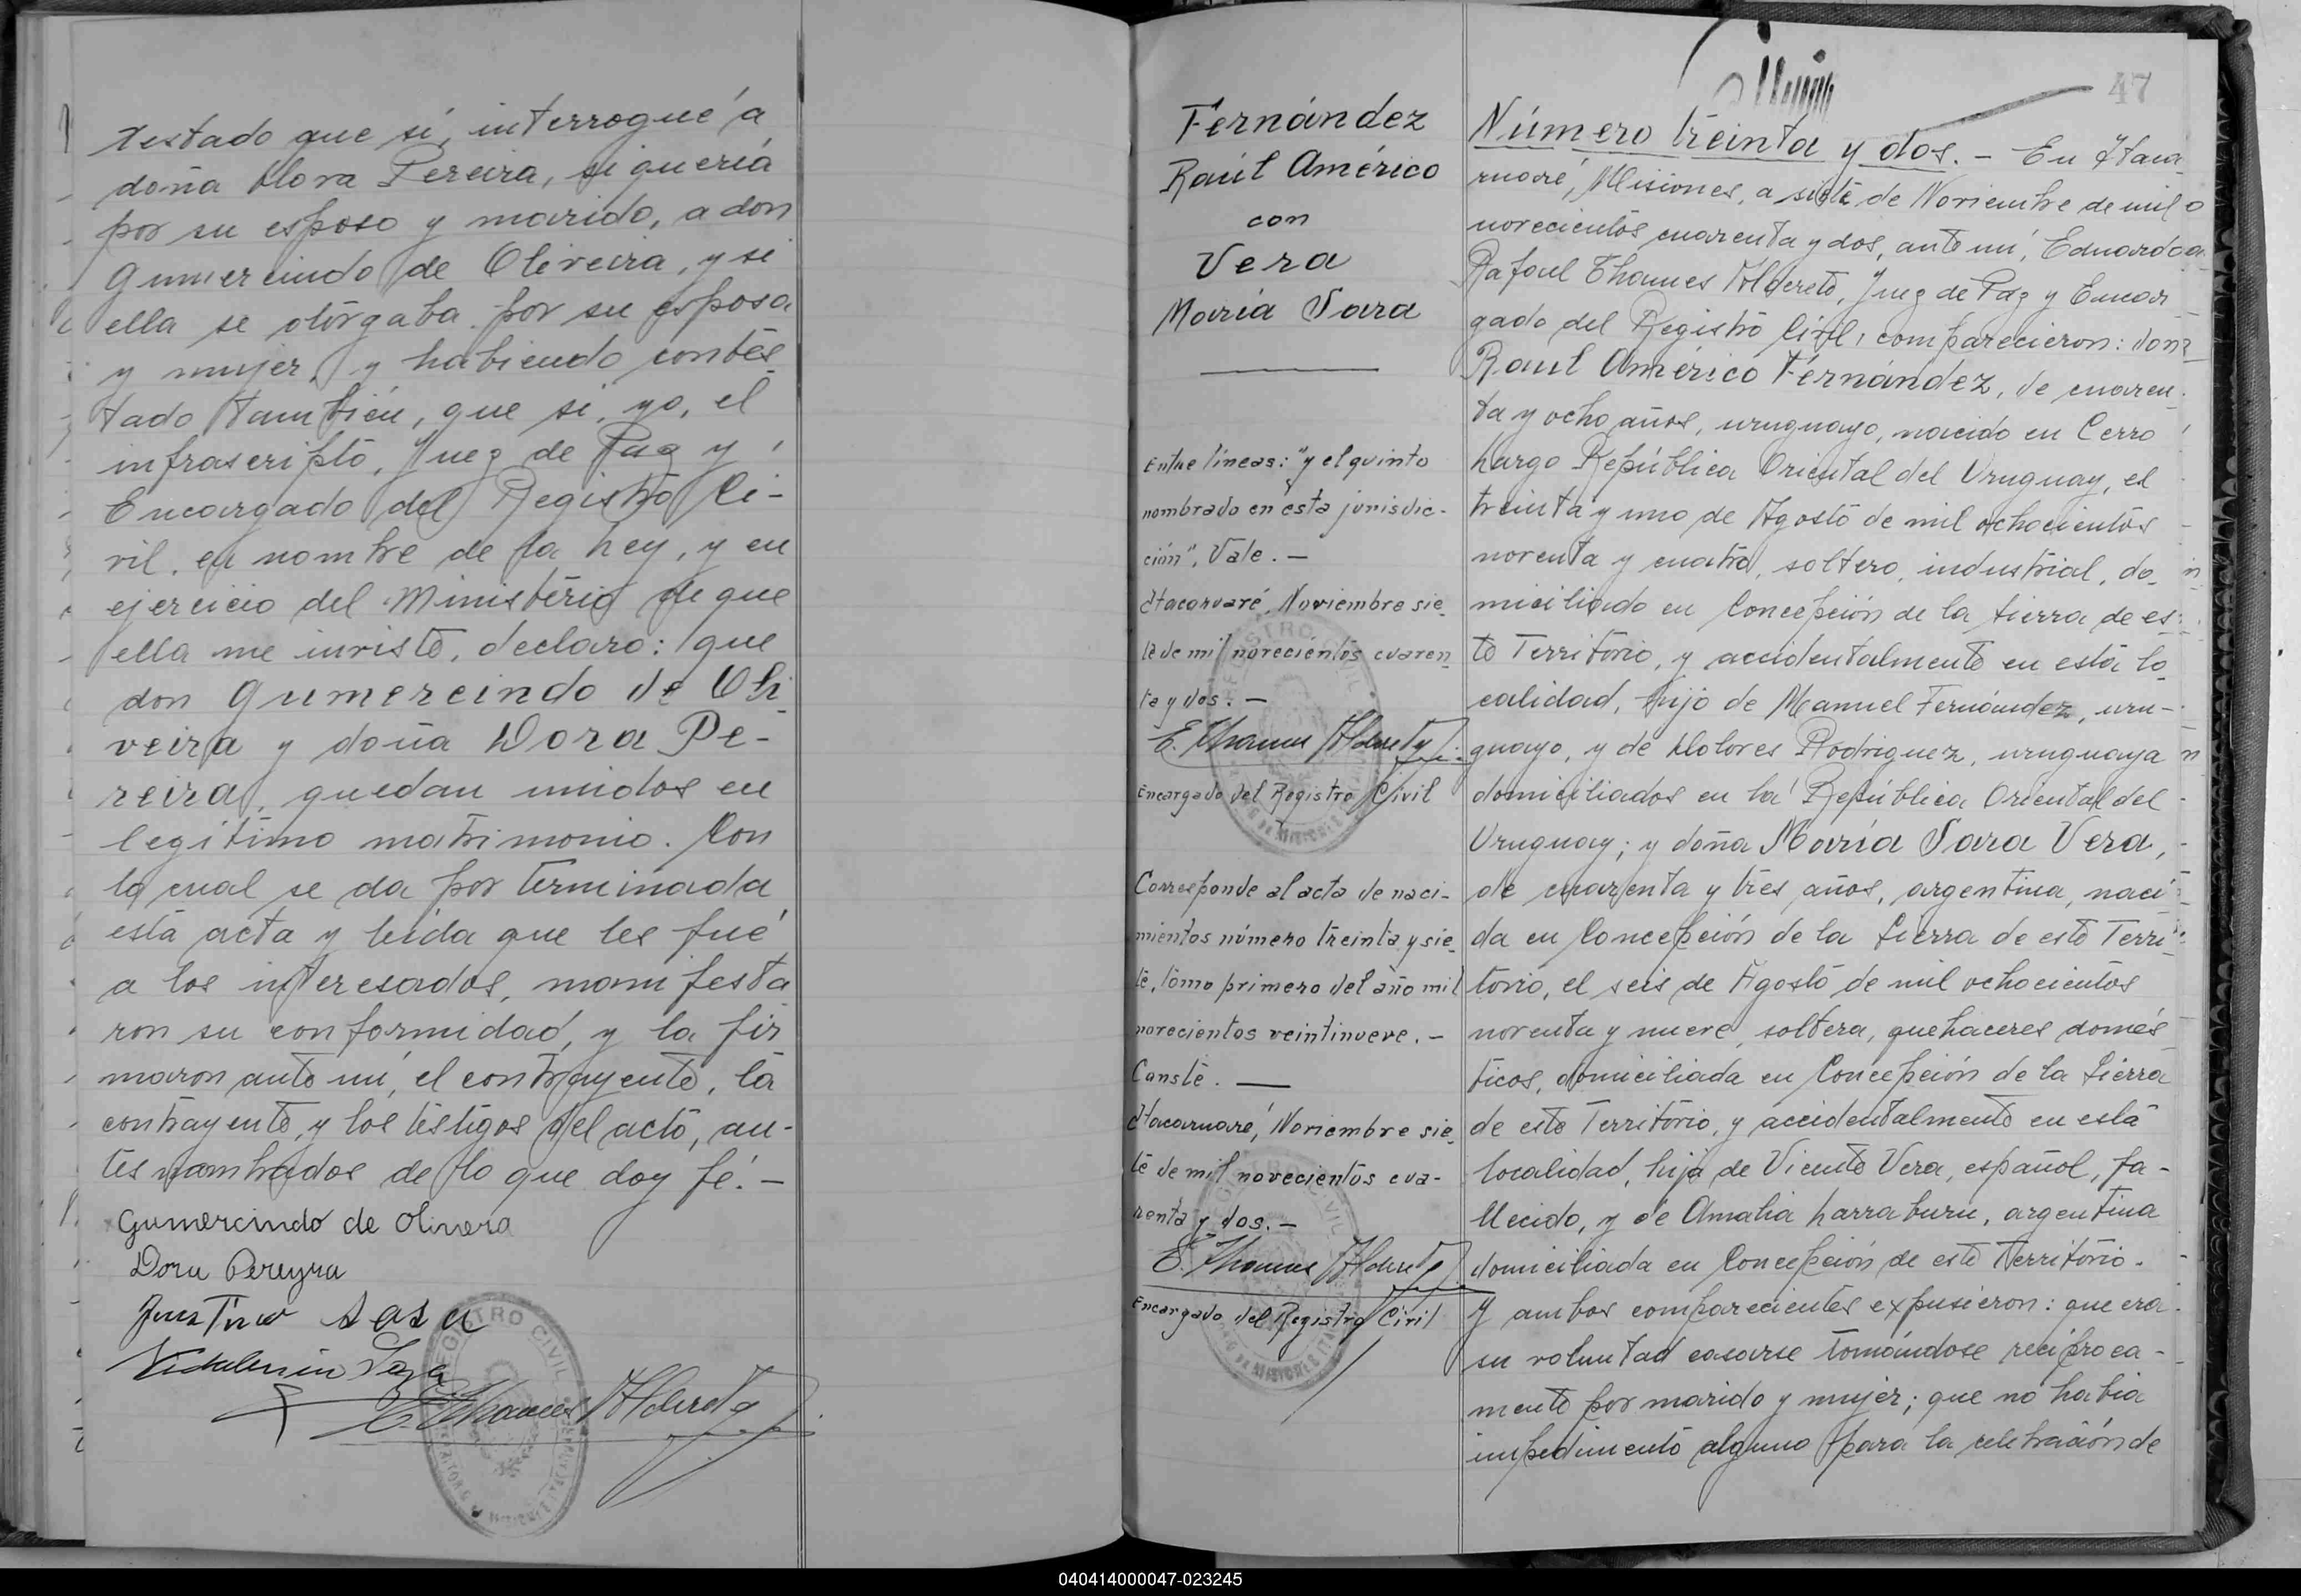 testado que sí, interrogué a
doña Dora Pereira, si quería
por su esposo y marido, a don
Gumercindo de Oliveira, y si
ella se otorgaba por su esposa
y mujer, y habiendo contes
tado también, que sí, yo, el
infrascripto, Juez de Paz y
Encargado del Registro Ci-
vil, en nombre de la Ley, y en
ejercicio del Ministerio de que
ella me inviste, declaro: que
don Gumercindo de Oli
veira y doña Dora Pe-
reira, quedan unidos en
legítimo matrimonio. Con
lo cual se da por terminada
esta acta y leída que les fué
a los interesados, manifesta
ron su conformidad, y la fir
maron ante mí, el contrayente, la
contrayente, y los testigos del acto, an-
tes nombrados de lo que doy fé. -
Gumercindo de Olivera
Dora Pereyra
E. Thames Alderete
REGISTRO CIVIL
47
Fernández
Raúl Américo
con
Vera
María Sara
Entre líneas: "y el quinto
nombrado en esta jurisdic-
ción", Vale. -
Itacaruaré, Noviembre sie
te de mil novecientos cuaren
ta y dos. -
E. Thames Alderete
Encargado del Registro Civil
Corresponde al acta de naci-
mientos número treinta y sie
te, tomo primero del año mil
novecientos veintinueve. -
Conste. -
Itacaruaré, Noviembre sie
te de mil novecientos cua-
renta y dos. -
E. Thames Alderete
Encargado del Registro Civil
Número treinta y dos. - En Itaca
ruaré, Misiones, a siete de Noviembre de mil
novecientos cuarenta y dos, ante mí, Eduardo
Rafael Thames Alderete, Juez de Paz y Encar
gado del Registro Civil, comparecieron: don
Raul Américo Fernández, de cuaren
ta y ocho años, uruguayo, nacido en Cerro
Largo República Oriental del Uruguay, el
treinta y uno de Agosto de mil ochocientos
noventa y cuatro, soltero, industrial, do
miciliado en Concepción de la Sierra de es
te Territorio, y accidentalmente en esta lo
calidad, hijo de Manuel Fernández, uru-
guayo, y de Dolores Rodriguez, uruguaya
domiciliados en la República Oriental del
Uruguay; y doña María Sara Vera,
de cuarenta y tres años, argentina, naci
da en Concepción de la Sierra de este Terri
torio, el seis de Agosto de mil ochocientos
noventa y nueve, soltera, quehaceres domés
ticos, domiciliada en Concepción de la Sierra
de este Territorio, y accidentalmente en esta
localidad, hija de Vicente Vera, español, fa-
llecido, y de Amalia Larraburu, argentina
domiciliada en Concepción de este Territorio.
Y ambos comparecientes expusieron: que era
su voluntad casarse tomándose recíproca-
mente por marido y mujer; que no había
impedimento alguno para la celebración de
040414000047-023245